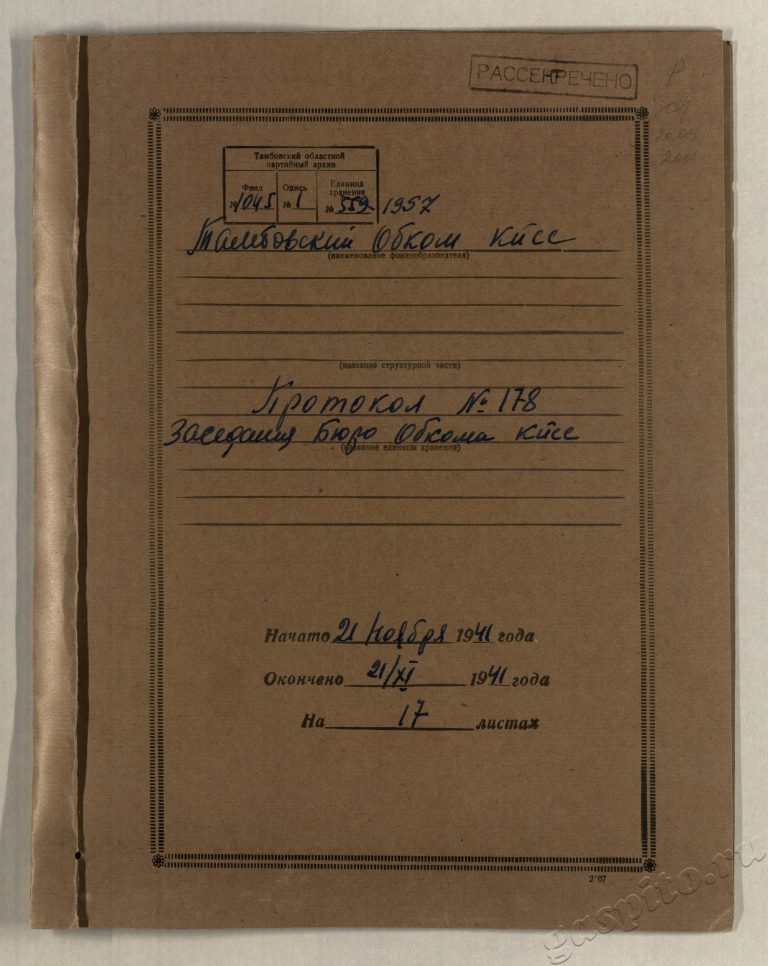 РАССЕКРЕЧЕНО
Тамбовский областной
партийный архив
Фонд Опись Единица хранения
№ 1045 № 1 № 559
1957
Тамбовский Обком КПСС
(наименование фондообразователя)
(название структурной части)
Протокол № 178
Заседания Бюро Обкома КПСС
(название единицы хранения)
Начато 21 Ноября 1941 года
Окончено 21/XI 1941 года
На 17 листах
gaspito.ru